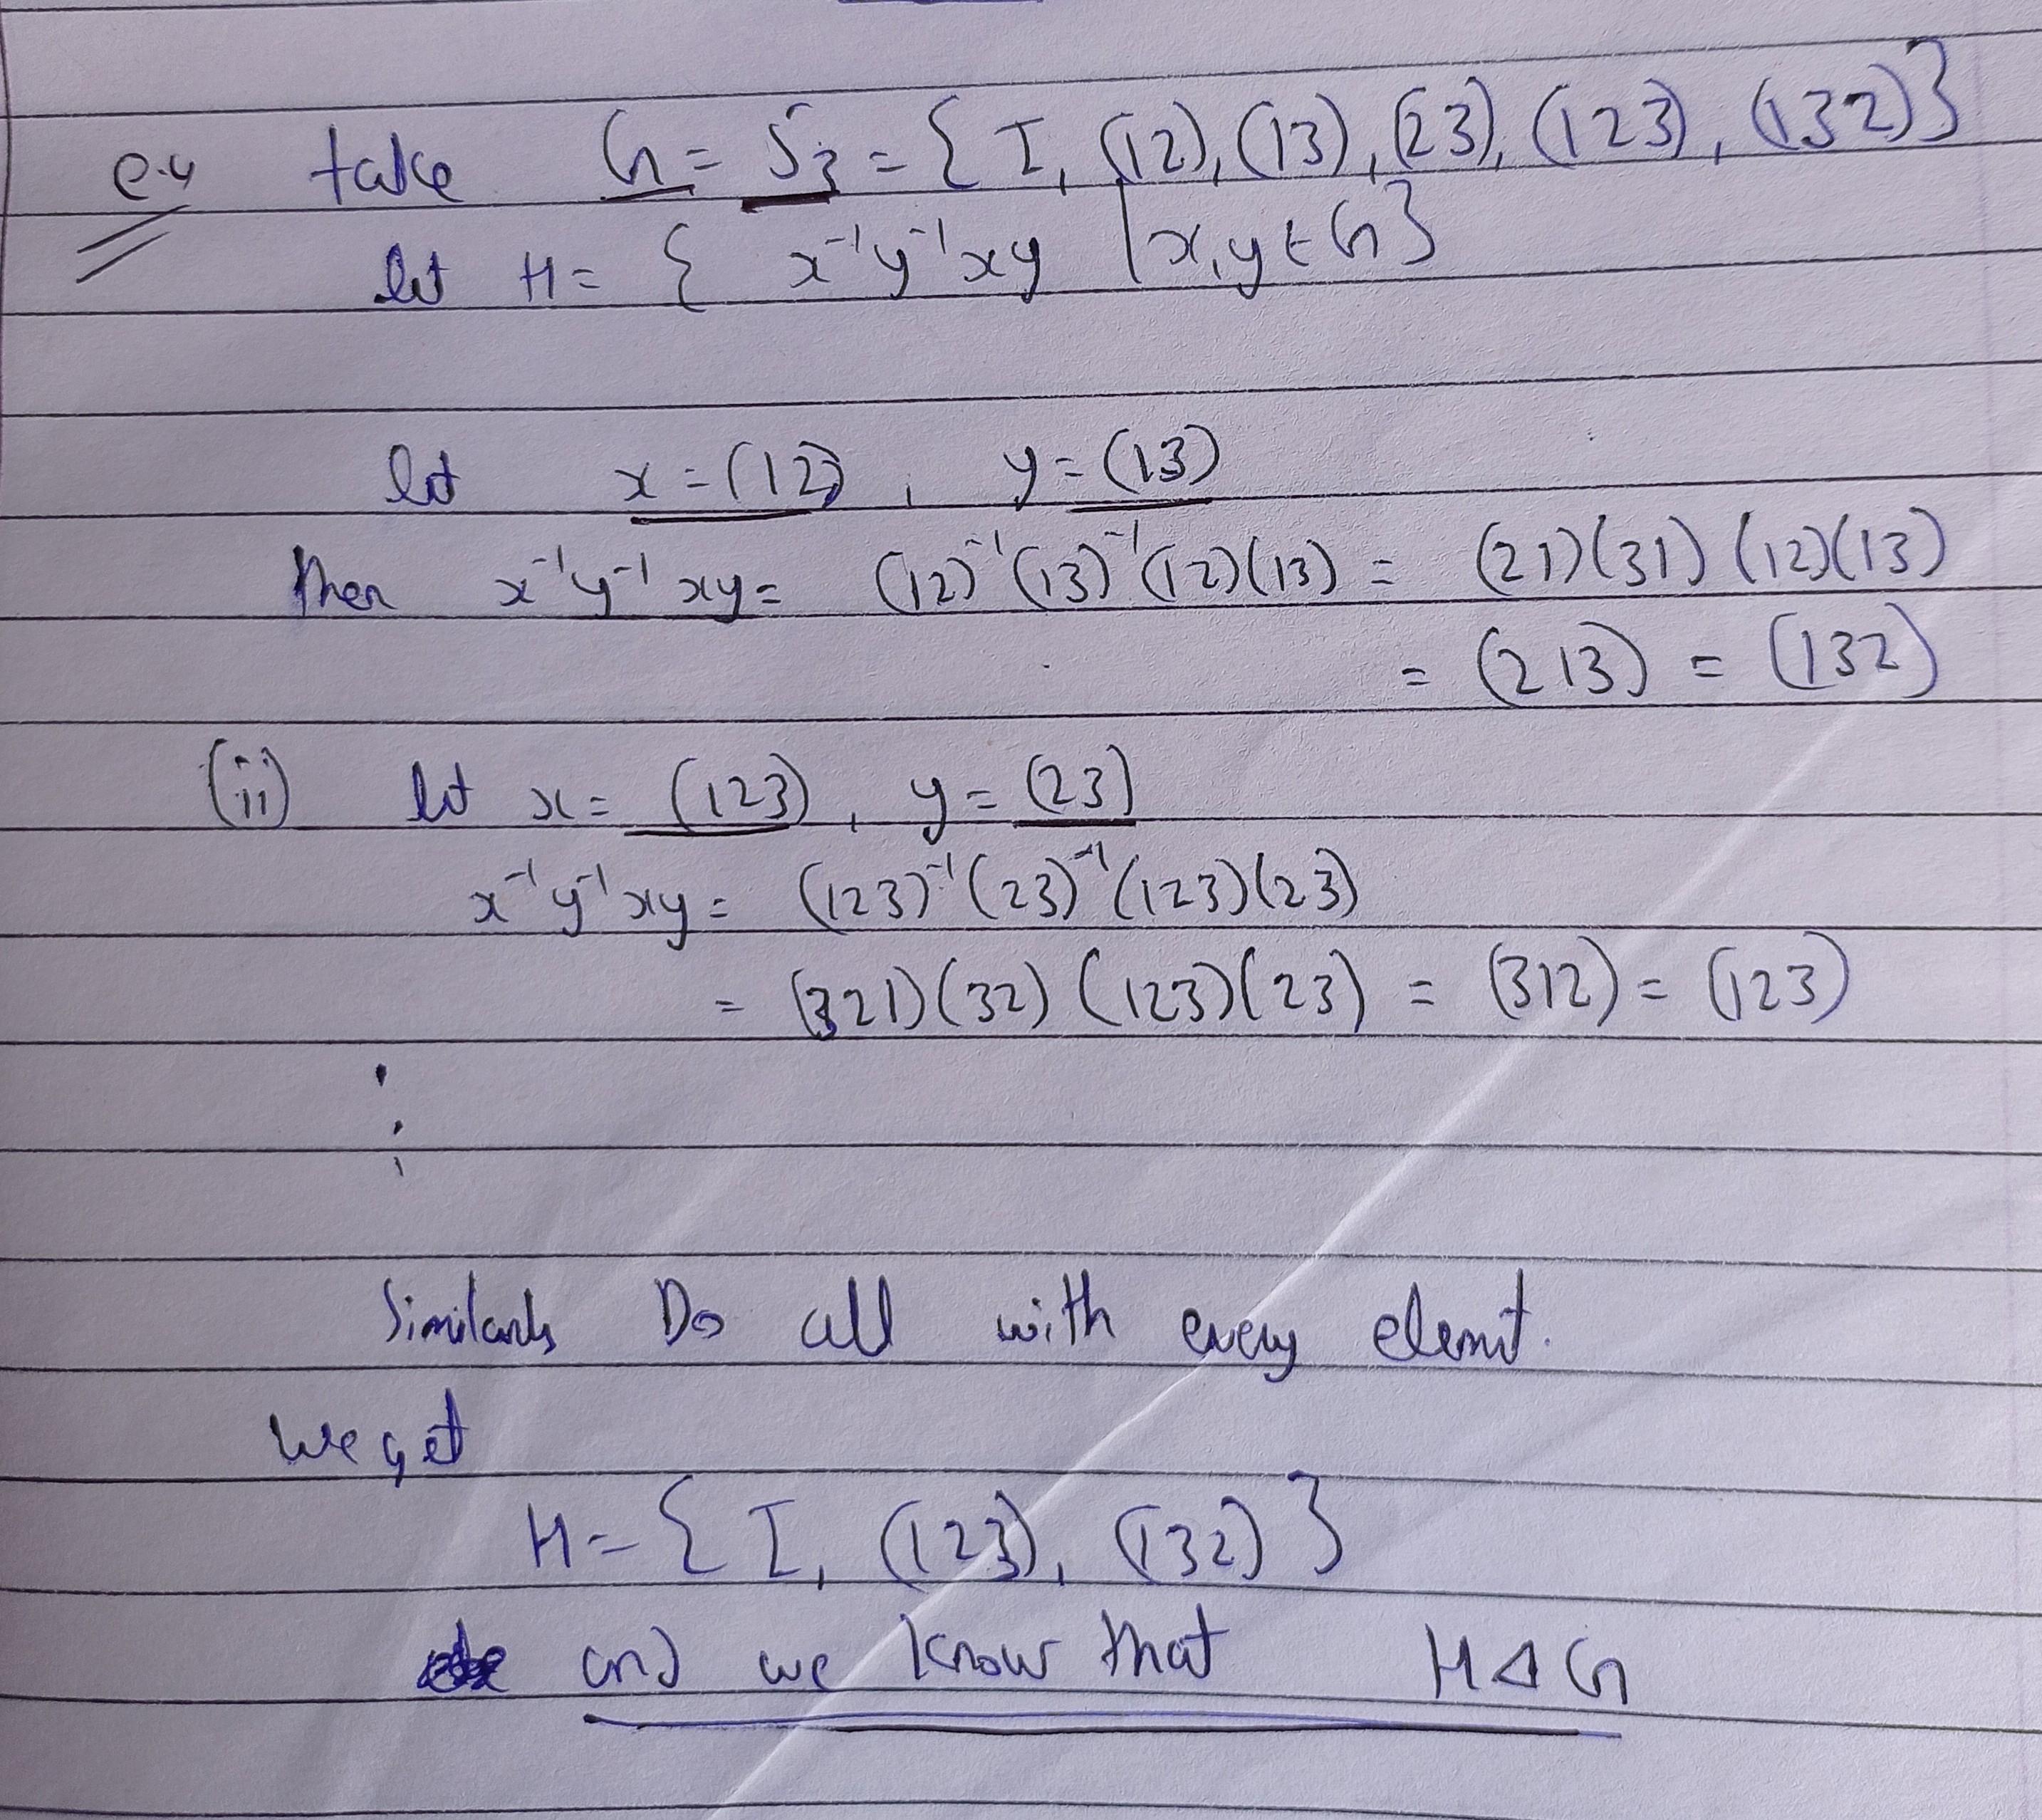 e.g take G = S₃ = { I, (12), (13), (23), (123), (132)}
let H = { x⁻¹y⁻¹xy | x,y ∈ G}
let x = (12) , y = (13)
then x⁻¹y⁻¹xy = (12)⁻¹(13)⁻¹(12)(13) = (21)(31)(12)(13)
= (213) = (132)
(ii) let x = (123) , y = (23)
x⁻¹y⁻¹xy = (123)⁻¹(23)⁻¹(123)(23)
= (321)(32)(123)(23) = (312) = (123)
Similarly Do all with every elemnt.
we get
H = { I, (123), (132) }
and we know that H ⊲ G